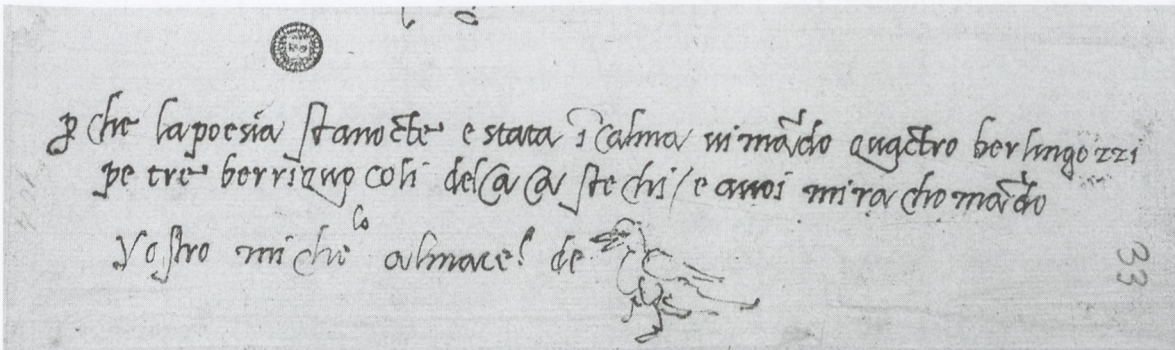 p che la poesia stanocte e stata i chalma vi mādo quactro berlingozzi
pe tre berriquocoli del chachastechi / e a voi mi rachomādo
Vostro michelo al macel de
33